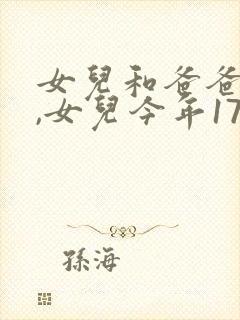 女兒和爸爸
,女兒今年17
孫海